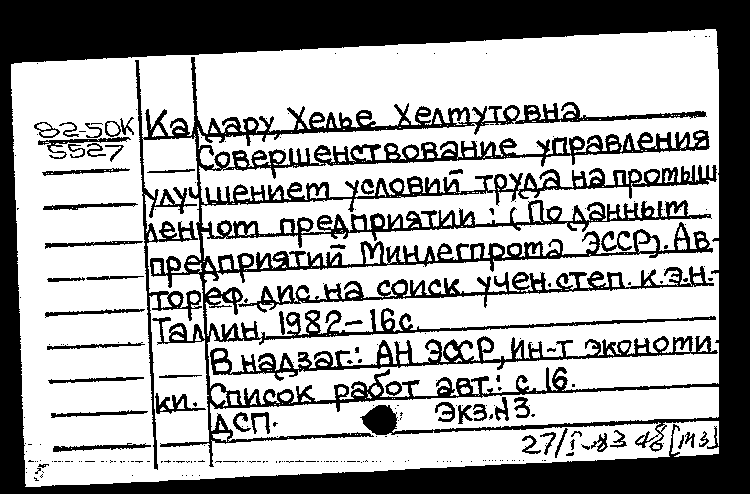 82-50К
5527
Калдару, Хелье Хелмутовна.
Совершенствование управления
улучшением условий труда на промыш
ленном предприятии: (По данным
предприятий Минлегпрома ЭССР). Ав-
тореф. дис. на соиск учен. степ. к.э.н.-
Таллин, 1982.-16с.
В надзаг.: АН ЭССР, Ин-т экономи-
ки. Список работ авт.: с. 16.
ДСП. Экз.№3.
27/I-83